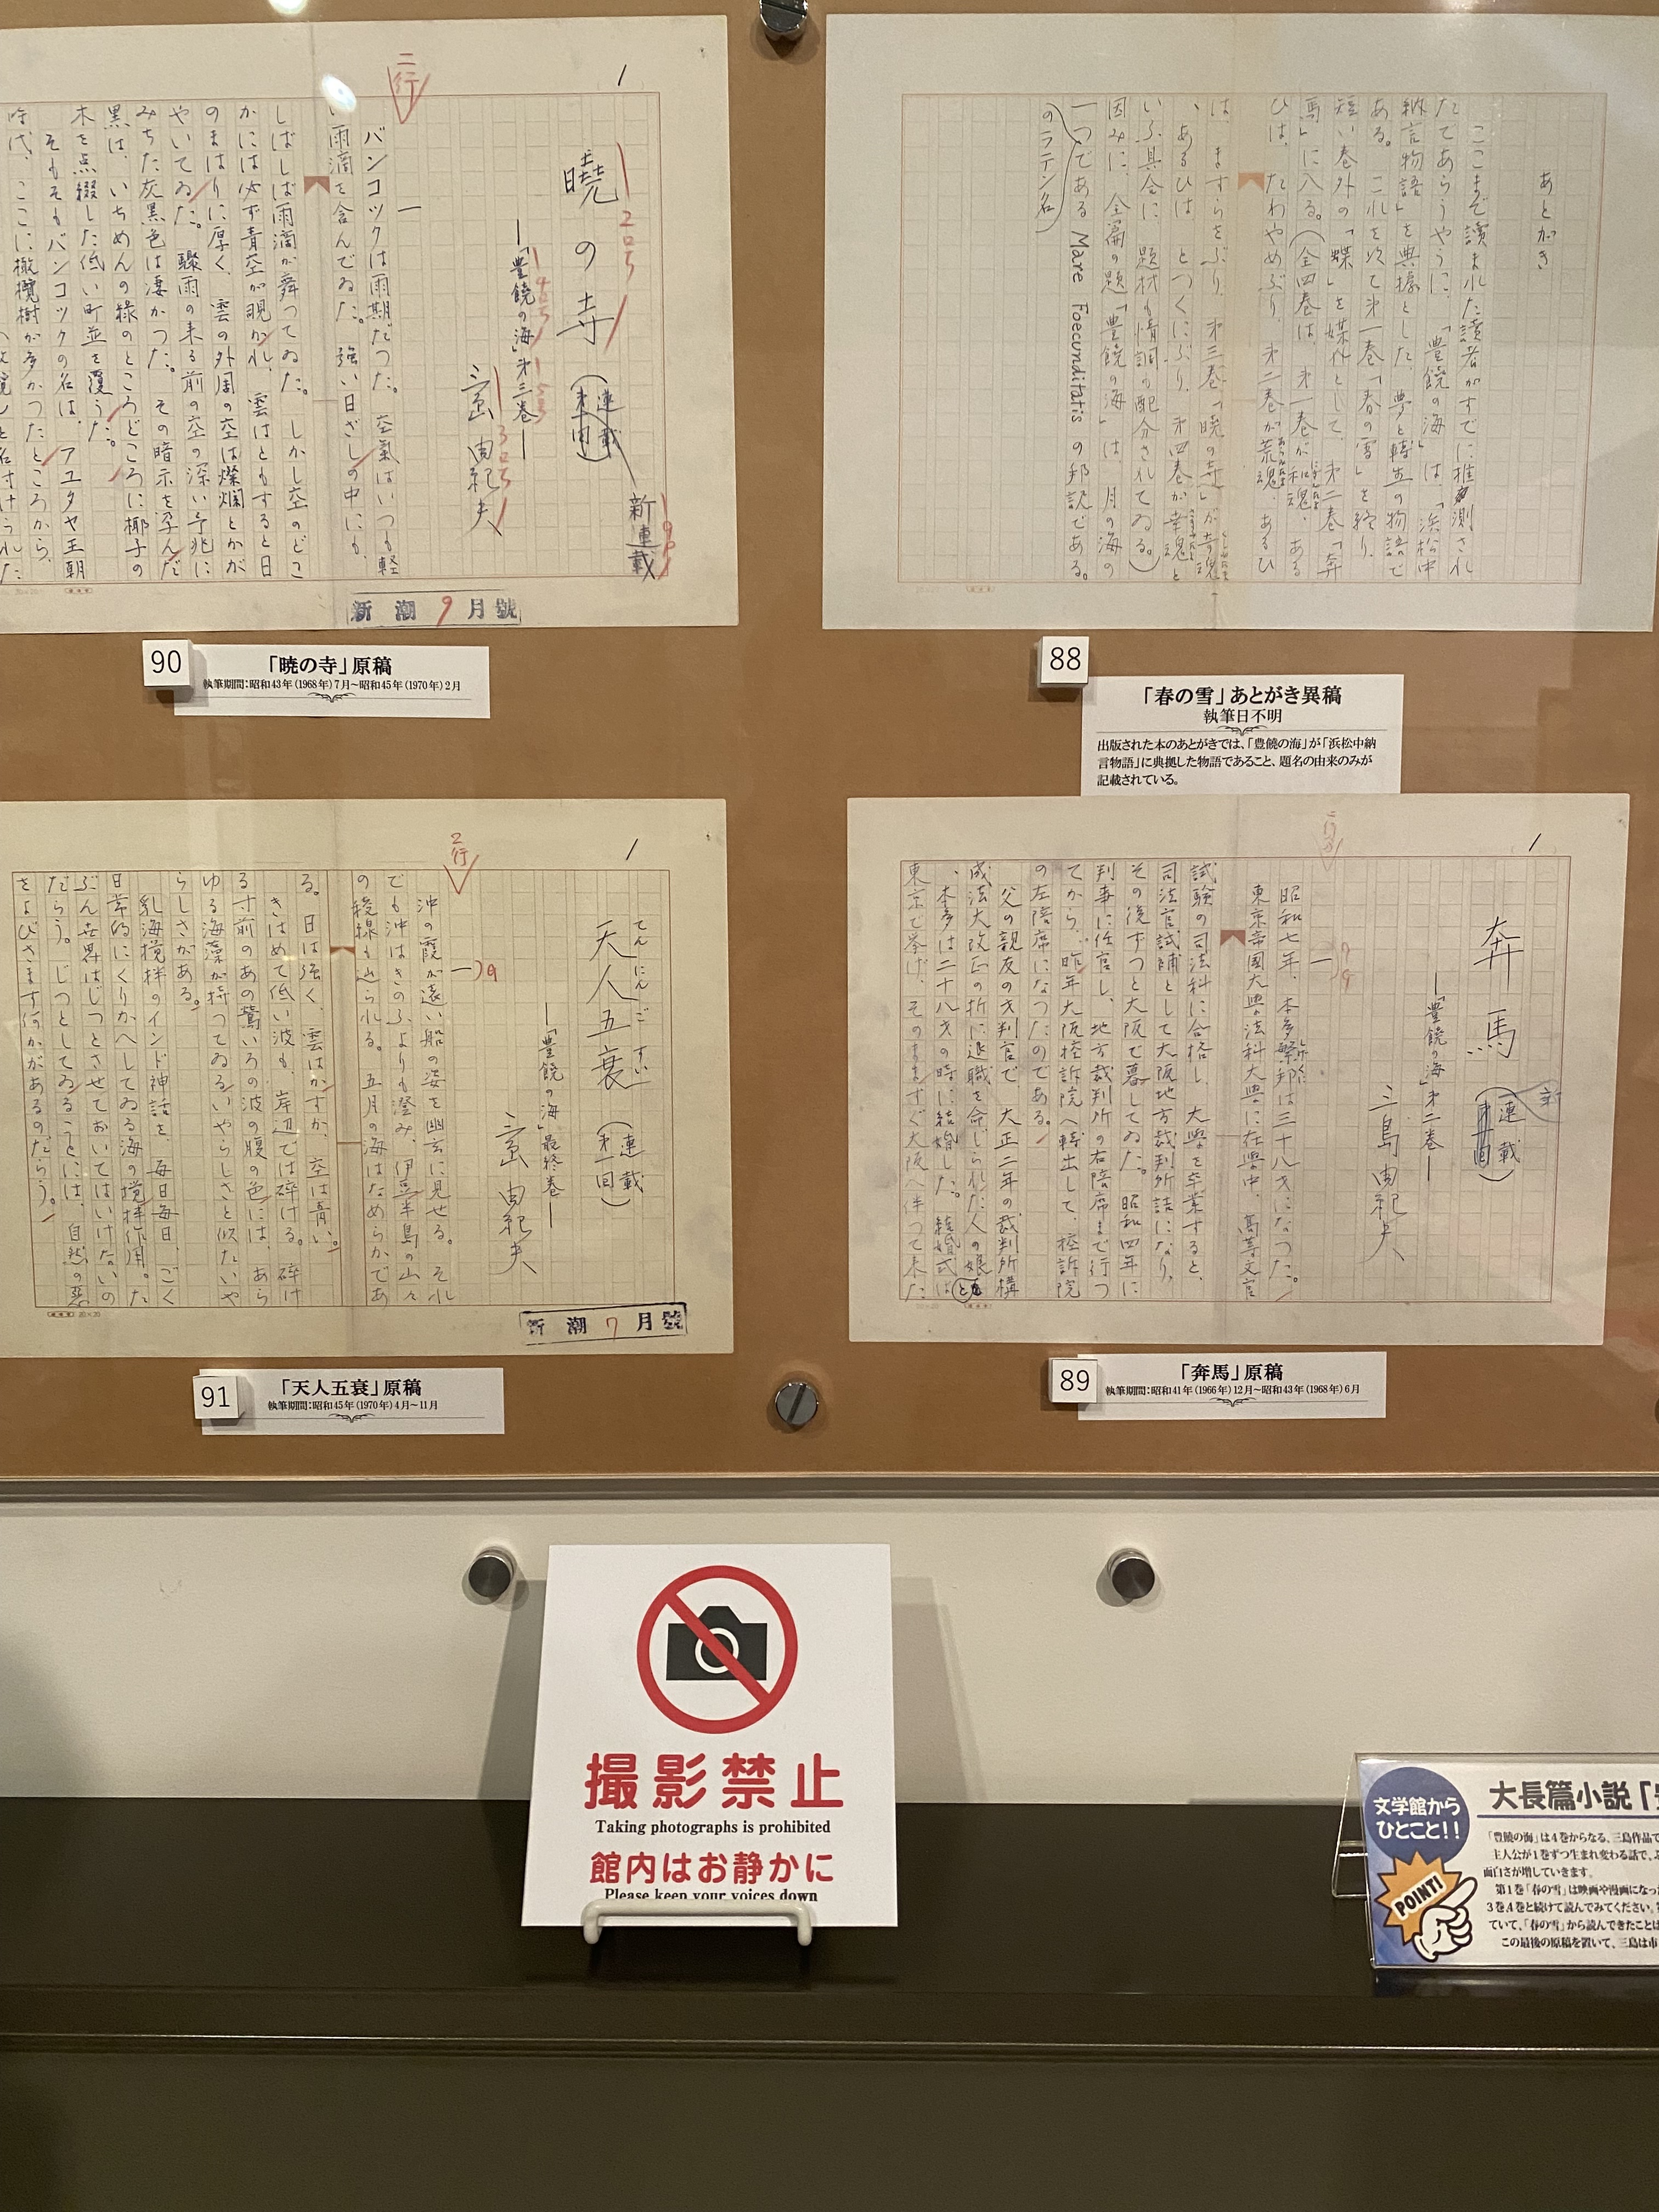 あとがき
ここまで讀まれた讀者がすでに推測され
たであらうやうに、「豊饒の海」は「浜松中
納言物語」を典據とした、夢と轉生の物語で
ある。これを以て第一巻「春の雪」を終り、
短い巻外の「蝶」を媒体として、第二巻「奔
馬」に入る。(全四巻は、第一巻が和魂、ある
ひは、たわやめぶり、第二巻が荒魂、あるひ
は、ますらをぶり、第三巻「暁の寺」が奇魂
、あるひは、とつくにぶり、第四巻が幸魂と
いふ具合に、題材も情調も配分されてゐる。)
因みに、全篇の題「豊饒の海」は、月の海の
一つである Mare Foecunditatis の邦訳である。
のラテン名
88
「春の雪」あとがき異稿
執筆日不明
出版された本のあとがきでは、「豊饒の海」が「浜松中納
言物語」に典拠した物語であること、題名の由来のみが
記載されている。
1
二行
暁の寺
(連載
第一回)
新連載
―「豊饒の海」第三巻―
三島由紀夫
一
バンコックは雨期だつた。空氣はいつも軽
い雨滴を含んでゐた。強い日ざしの中にも、
しばしば雨滴が舞つてゐた。しかし空のどこ
かには必ず青空が覗かれ、雲はともすると日
のまはりに厚く、雲の外周の空は燦爛とかが
やいてゐた。驟雨の来る前の空の深い予兆に
みちた灰黒色は凄かつた。その暗示を孕んだ
黒は、いちめんの緑のところどころに椰子の
木を点綴した低い町並を覆うた。
そもそもバンコックの名は、アユタヤ王朝
時代、ここに橄欖樹が多かつたところから、
新潮9月號
90
「暁の寺」原稿
執筆期間:昭和43年(1968年)7月~昭和45年(1970年)2月
1
奔馬
(連載
第一回)
新
―「豊饒の海」第二巻―
三島由紀夫
一
昭和七年、本多繁邦は三十八才になつた。
東京帝国大學法科大學に在學中、高等文官
試驗の司法科に合格し、大學を卒業すると、
司法官試補として大阪地方裁判所詰になり、
その後ずつと大阪で暮してゐた。昭和四年に
判事に任官し、地方裁判所の右陪席まで行つ
てから、昨年大阪控訴院へ轉出して、控訴院
の左陪席になつたのである。
父の親友の裁判官で、大正二年の裁判所構
成法大改正の折に退職を命じられた人の娘と
、本多は二十八才の時に結婚した。結婚式は
東京で挙げ、そのまますぐ大阪へ伴つて来た
89
「奔馬」原稿
執筆期間:昭和41年(1966年)12月~昭和43年(1968年)6月
1
2行
てんにんごすい
天人五衰
(連載
第一回)
―「豊饒の海」最終巻―
三島由紀夫
一
沖の霞が遠い船の姿を幽玄に見せる。それ
でも沖はきのふよりも澄み、伊豆半島の山々
の稜線も辿られる。五月の海はなめらかであ
る。日は強く、雲はかすか、空は青い。
きはめて低い波も、岸辺では碎ける。碎け
る寸前のあの鶯いろの波の腹の色には、あら
ゆる海藻が持つてゐるいやらしさと似たいや
らしさがある。
乳海撹拌のインド神話を、毎日毎日、ごく
日常的にくりかへしてゐる海の撹拌作用。た
ぶん世界はじつとさせておいてはいけないの
だらう。じつとしてゐることには、自然の悪
をよびさます何かがあるのだらう。
新潮7月號
91
「天人五衰」原稿
執筆期間:昭和45年(1970年)4月~11月
撮影禁止
Taking photographs is prohibited
館内はお静かに
Please keep your voices down
文学館から
ひとこと!!
POINT!
大長篇小説「
「豊饒の海」は4巻からなる、三島作品で
主人公が1巻ずつ生まれ変わる話で、
面白さが増していきます。
第1巻「春の雪」は映画や漫画になっ
3巻4巻と続けて読んでみてください。
ていて、「春の雪」から読んできたことは
この最後の原稿を置いて、三島は市